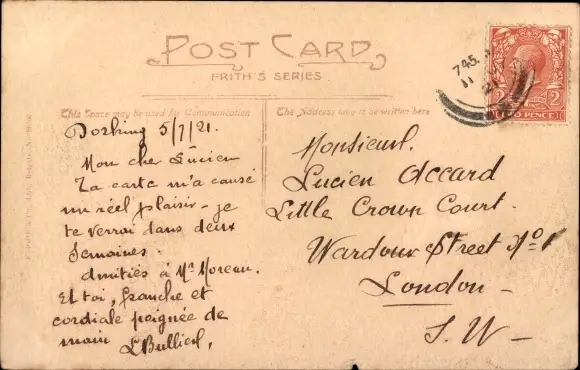 POST CARD
FRITH'S SERIES
This Space may be used for Communication
The Address only to be written here
Dorking 5/7/21.
Mon cher Lucien
Ta carte m'a causé
un réel plaisir - je
te verrai dans deux
Semaines.
Amitiés à Mr Moreau.
Et toi, franche et
cordiale poignée de
main
Monsieur.
Lucien Accard
Little Crown Court.
Wardour Street
London -
S.W -
7.45
11
TWO PENCE
2 2